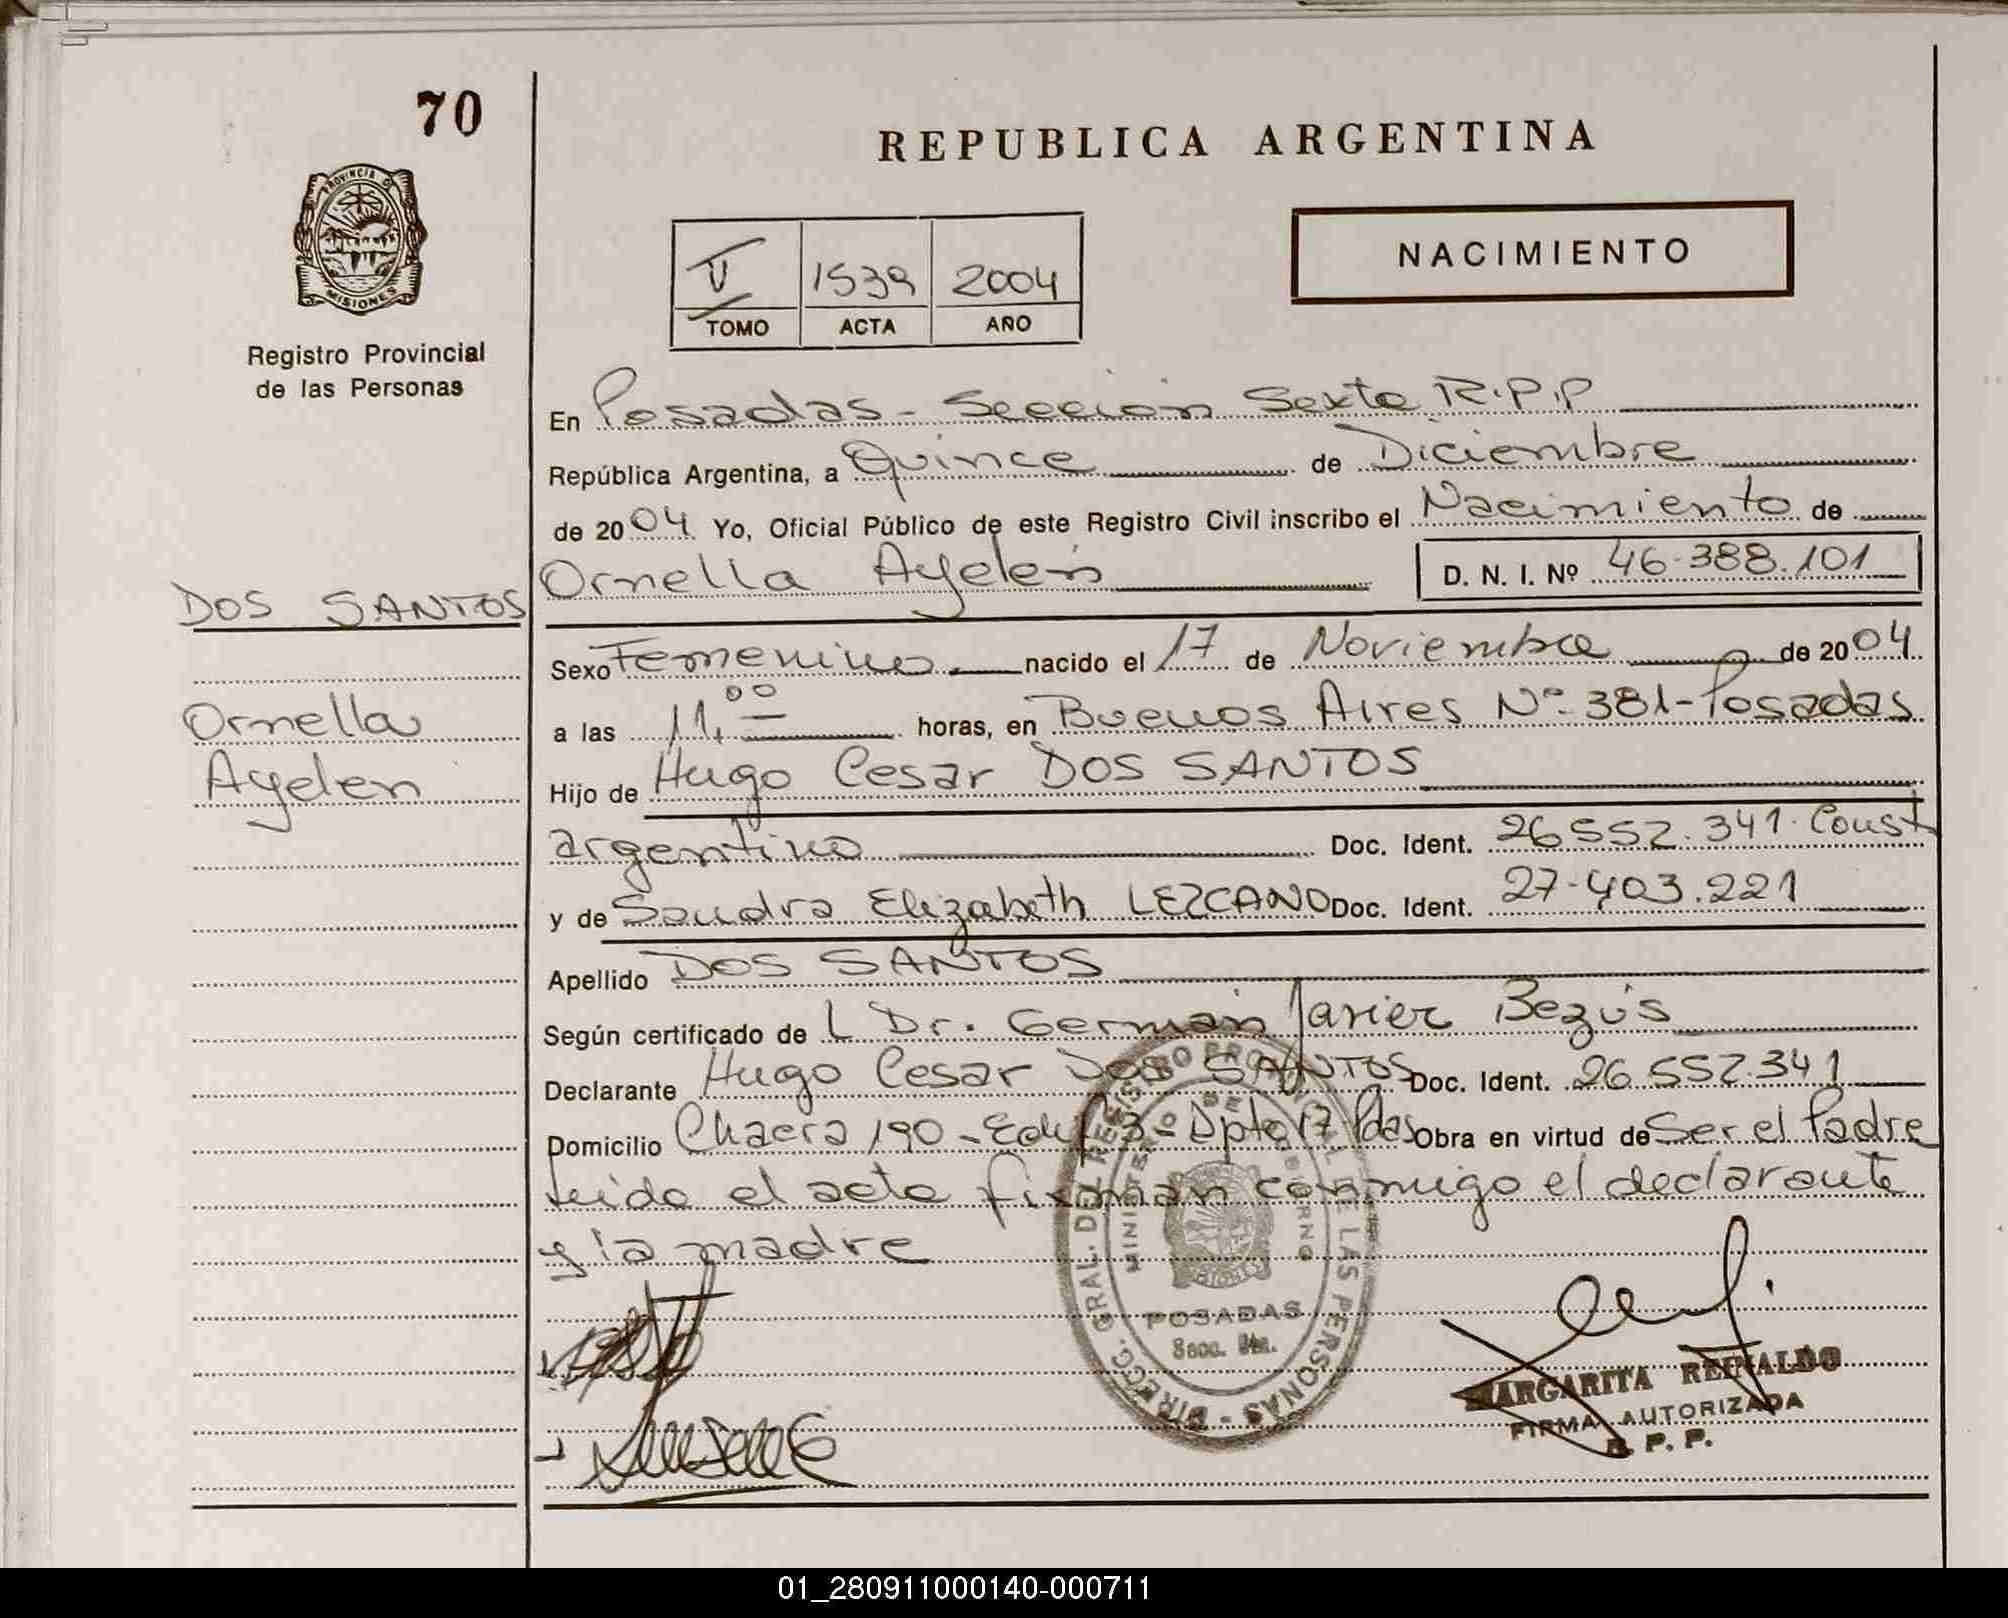 70
REPUBLICA ARGENTINA
PROVINCIA DE
MISIONES
Registro Provincial
de las Personas
NACIMIENTO
V 1539 2004
TOMO ACTA AÑO
En Posadas - Sección Sexta R.P.P
República Argentina, a Quince de Diciembre
de 2004 Yo, Oficial Público de este Registro Civil inscribo el Nacimiento de
Ornella Ayelén D. N. I. Nº 46.388.101
DOS SANTOS
Ornella
Ayelen
Sexo Femenino nacido el 17 de Noviembre de 2004
a las 11,00 horas, en Buenos Aires Nº 381 - Posadas
Hijo de Hugo Cesar DOS SANTOS
argentino Doc. Ident. 26.552.341. Const
y de Sandra Elizabeth LEZCANO Doc. Ident. 27.403.221
Apellido DOS SANTOS
Según certificado de L Dr. Germán Javier Bezús
Declarante Hugo Cesar DOS SANTOS Doc. Ident. 26.552.341
Domicilio Chacra 190 - Edif 3 - Dpto 17 Pdas Obra en virtud de Ser el Padre
leido el acta firman conmigo el declarante
y la madre
DIRECC. GRAL. DEL REGISTRO PROVINCIAL DE LAS PERSONAS
MINISTERIO DE GOBIERNO
MISIONES
POSADAS
Secc. 6ta.
MARGARITA REINALDO
FIRMA AUTORIZADA
R. P. P.
01_280911000140-000711